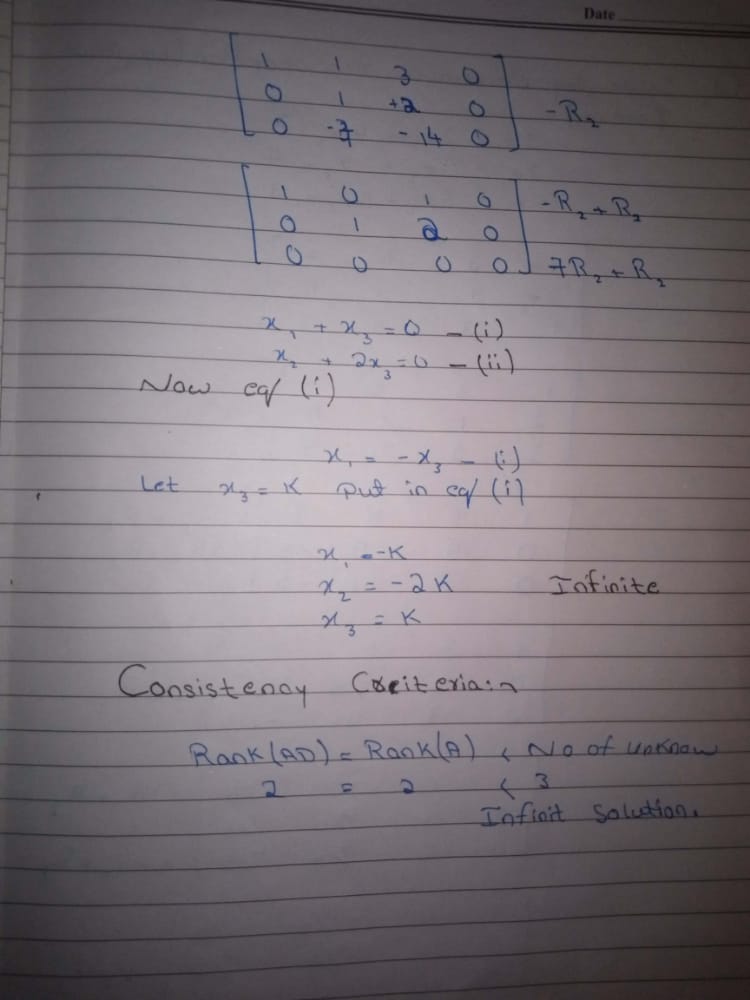 Date
1 1 3 0
0 1 +2 0 -R2
0 -7 -14 0
1 0 1 0 -R2 + R2
0 1 2 0
0 0 0 0 7R2 + R2
x1 + x3 = 0 - (i)
x2 + 2x3 = 0 - (ii)
Now eq (i)
x1 = -x3 - (i)
Let x3 = K put in eq (i)
x1 = -K
x2 = -2K Infinite
x3 = K
Consistency Creiteria:~
Rank(AD) = Rank(A) < No of unknow
2 = 2 < 3
Infinit Solution.